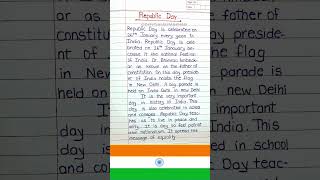 Republic Day
Republic Day is celebrated on
26th January every year in
India. Republic Day is cele
brated on 26th January bec
cause it the national Festival
of India. Dr. Bhimrao Ambedk
ar is known as the father of
constitution. On this day preside
nt of India hoists the flag
in New Delhi. A big parade is
held on India Gate in new Delhi
It is the very important
day in history of India. This
day is also celebrated in school
and colleges. Republic Day teac
hes us to live in peace and
unity. It is day to feel patriot
and nationalism. It spreads the
message of equality.